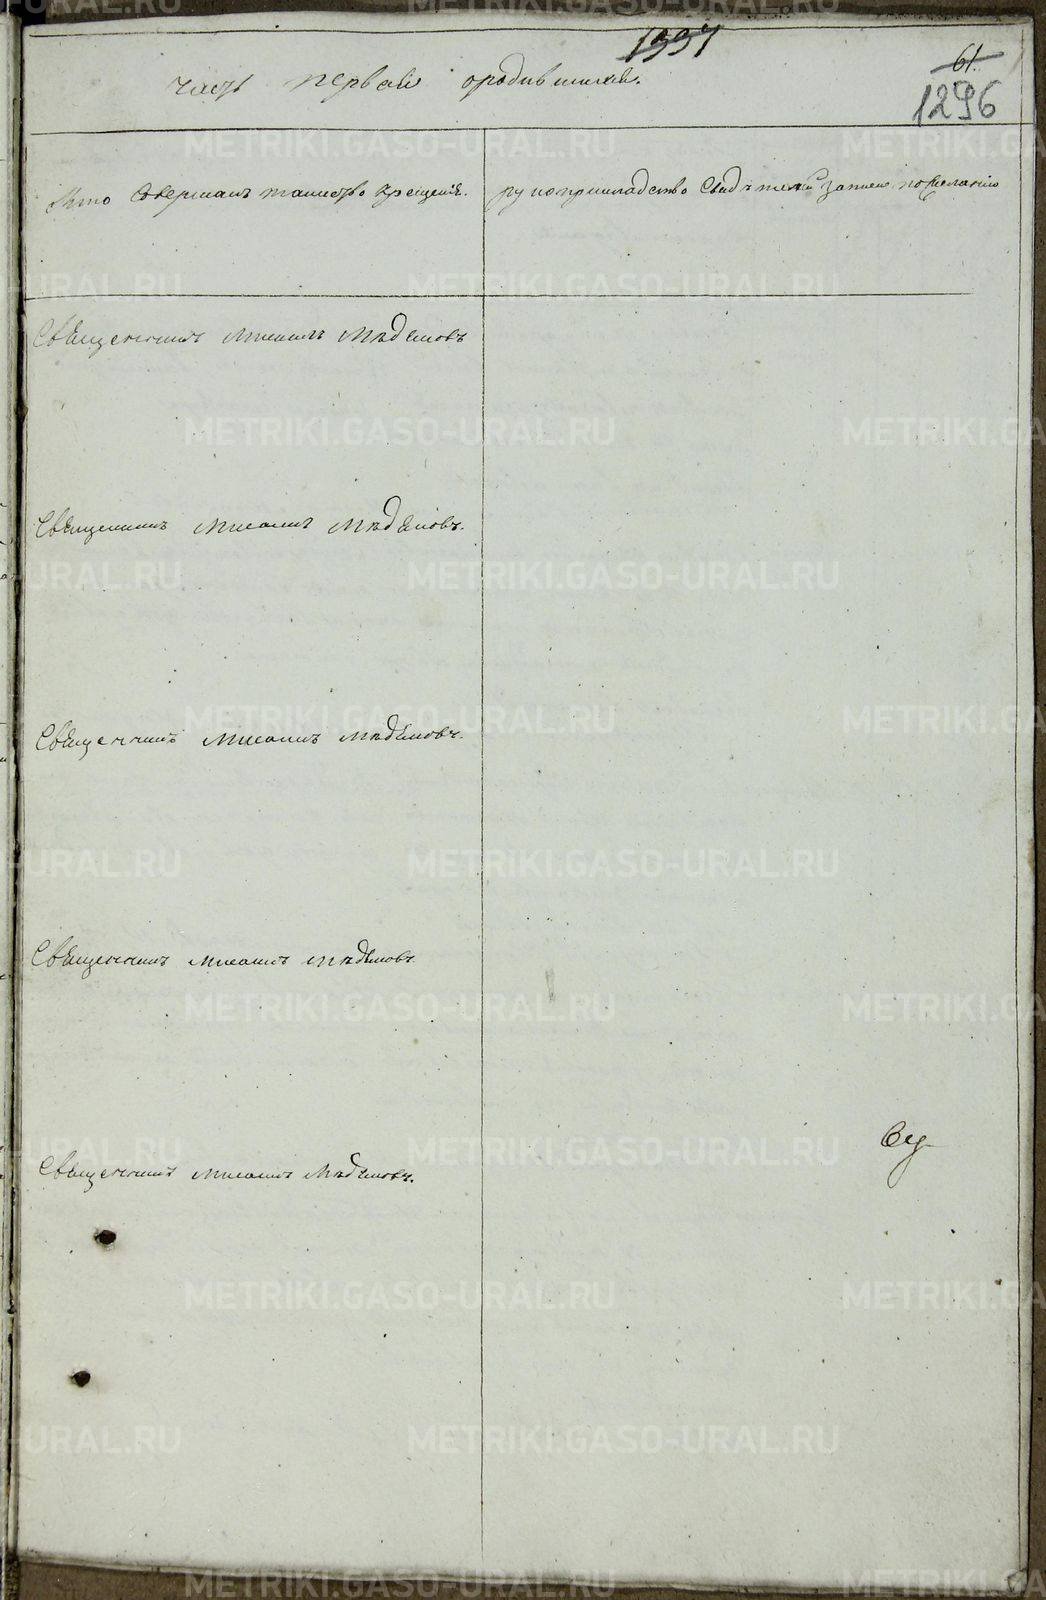 1337
61.
1296
часть первая ородившихся.
Кто Совершалъ таинство Крещенія.
рукоприкладство Свидѣтелей записи пожеланію
Священникъ Михаилъ Мѣдемовъ
Священникъ Михаилъ Мѣдемовъ.
Священникъ Михаилъ Мѣдемовъ.
Священникъ Михаилъ Мѣдемовъ
Священникъ Михаилъ Мѣдемовъ.
METRIKI.GASO-URAL.RU